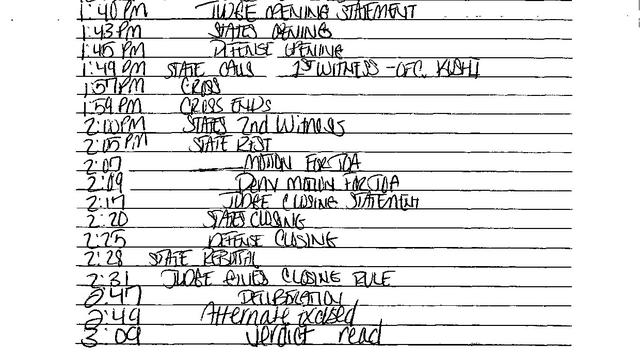 1:40 PM JUDGE OPENING STATEMENT
1:43 PM STATES OPENING
1:45 PM DEFENSE OPENING
1:49 PM STATE CALLS 1ST WITNESS - OFC.
1:57 PM CROSS
1:59 PM CROSS ENDS
2:00 PM STATES 2nd Witness
2:05 PM STATE REST
2:07 MOTION FOR JOA
2:09 DENY MOTION FOR JOA
2:17 JUDGE CLOSING STATEMENT
2:20 STATES CLOSING
2:25 DEFENSE CLOSING
2:28 STATE REBUTTAL
2:31 JUDGE GIVES CLOSING RULE
2:47 DELIBERATION
2:49 Alternate excused
3:09 Verdict read